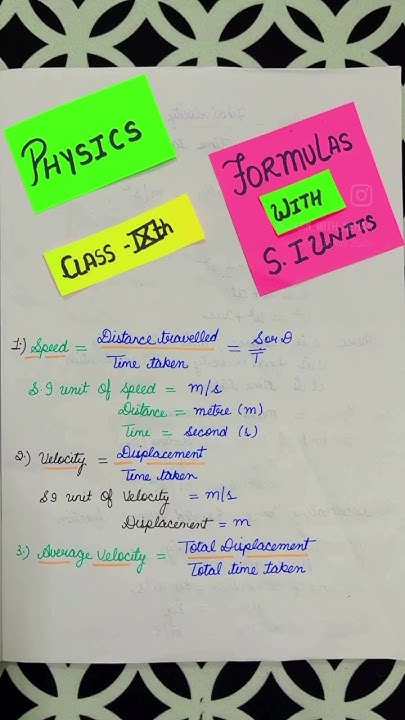 PHYSICS
CLASS - IXth
FORMULAS
WITH
S. I UNITS
1) Speed = Distance travelled / Time taken = S or D / T
S I unit of speed = m/s
Distance = metre (m)
Time = second (s)
2.) Velocity = Displacement / Time taken
SI unit of Velocity = m/s
Displacement = m
3.) Average Velocity = Total Displacement / Total time taken